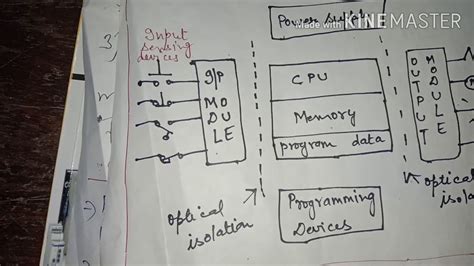 Power
Made with KINEMASTER
Input
sensing
devices
I/P
MODULE
CPU
Memory
program data
OUTPUT
MODULE
optical
isolation
Programming
Devices
optical
isolation
3)